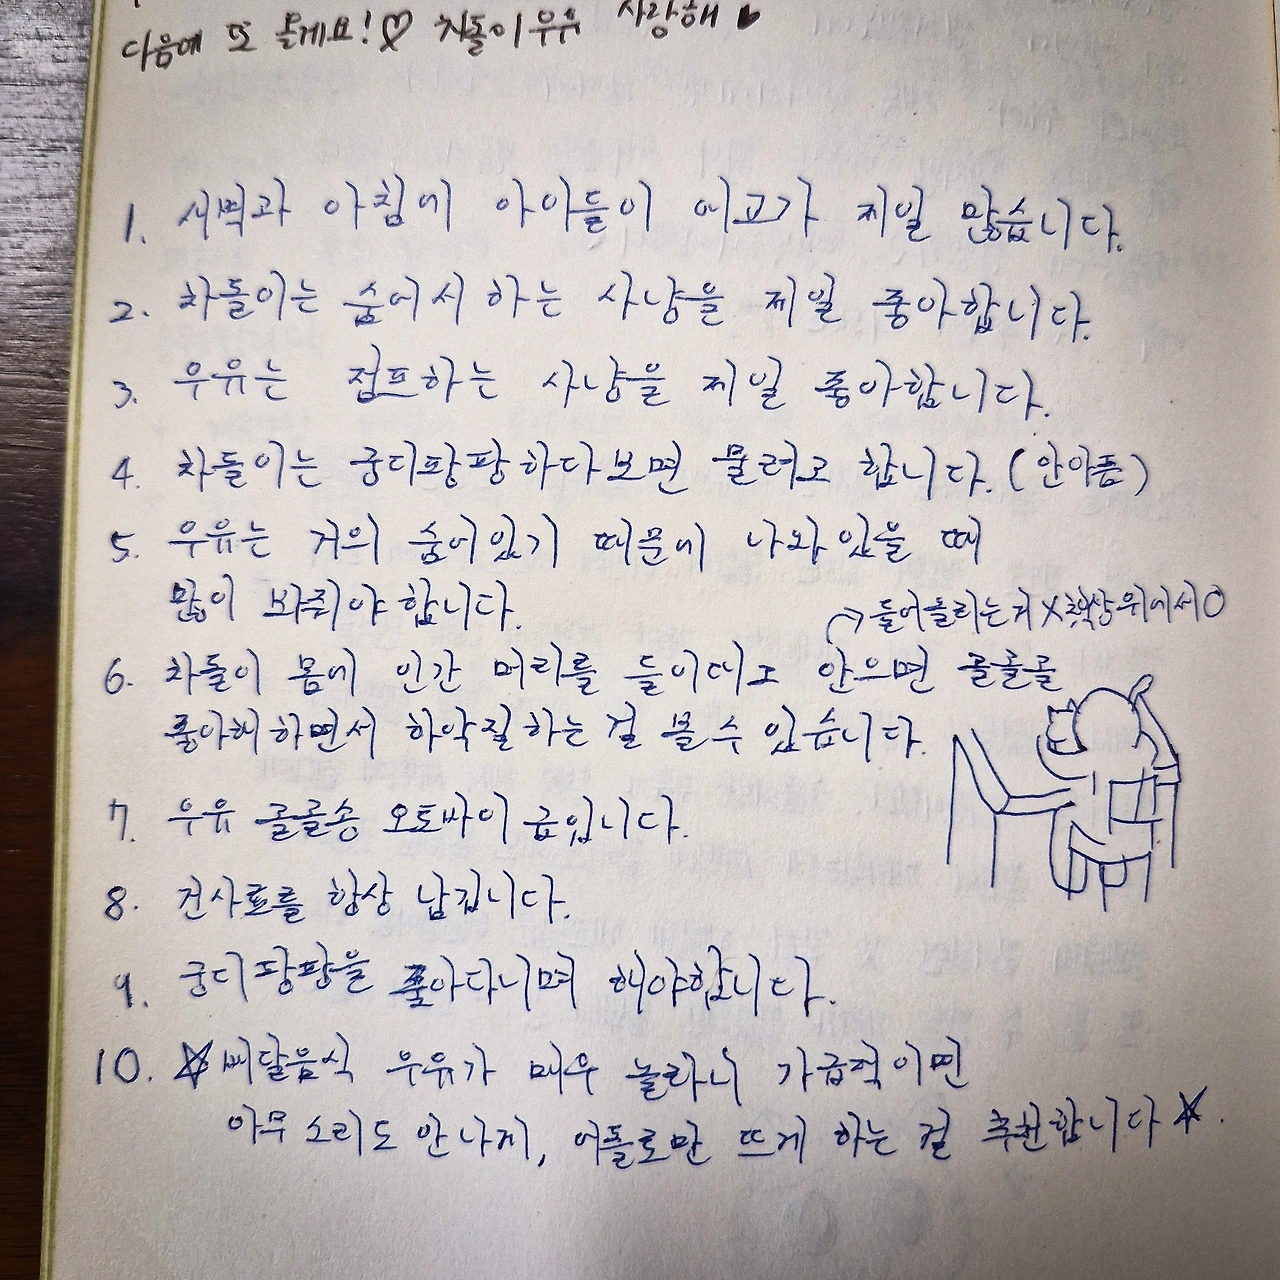 다음에 또 올게요!♡ 차돌이우유 사랑해♥
1. 새벽과 아침에 아이들이 애교가 제일 많습니다.
2. 차돌이는 숨어서 하는 사냥을 제일 좋아합니다.
3. 우유는 점프하는 사냥을 제일 좋아합니다.
4. 차돌이는 궁디팡팡하다보면 물려고 합니다. (안아픔)
5. 우유는 거의 숨어있기 때문에 나와있을 때
많이 봐줘야 합니다.
→들어올리는거X책상위에서O
6. 차돌이 몸에 인간 머리를 들이대고 안으면 골골골
좋아해하면서 하악질하는 걸 볼 수 있습니다.
7. 우유 골골송 오토바이 급입니다.
8. 건사료를 항상 남깁니다.
9. 궁디팡팡을 쫓아다니며 해야합니다.
10. ☆배달음식 우유가 매우 놀라니 가급적이면
아무 소리도 안나게, 어플로만 뜨게 하는 걸 추천합니다☆.